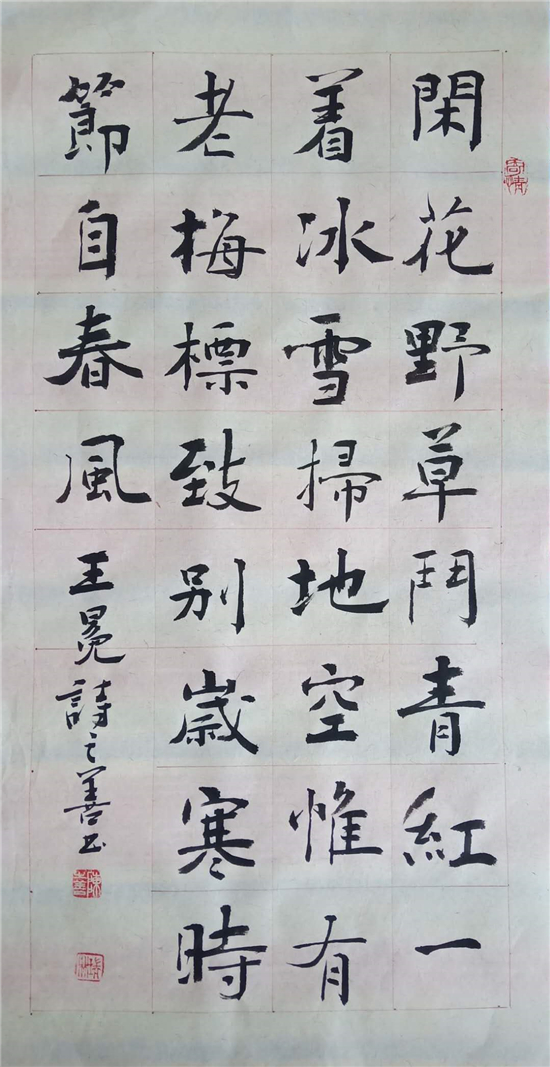 閑花野草鬥青紅一
着冰雪掃地空惟有
老梅標致別歲寒時
節自春風
王冕詩之善书